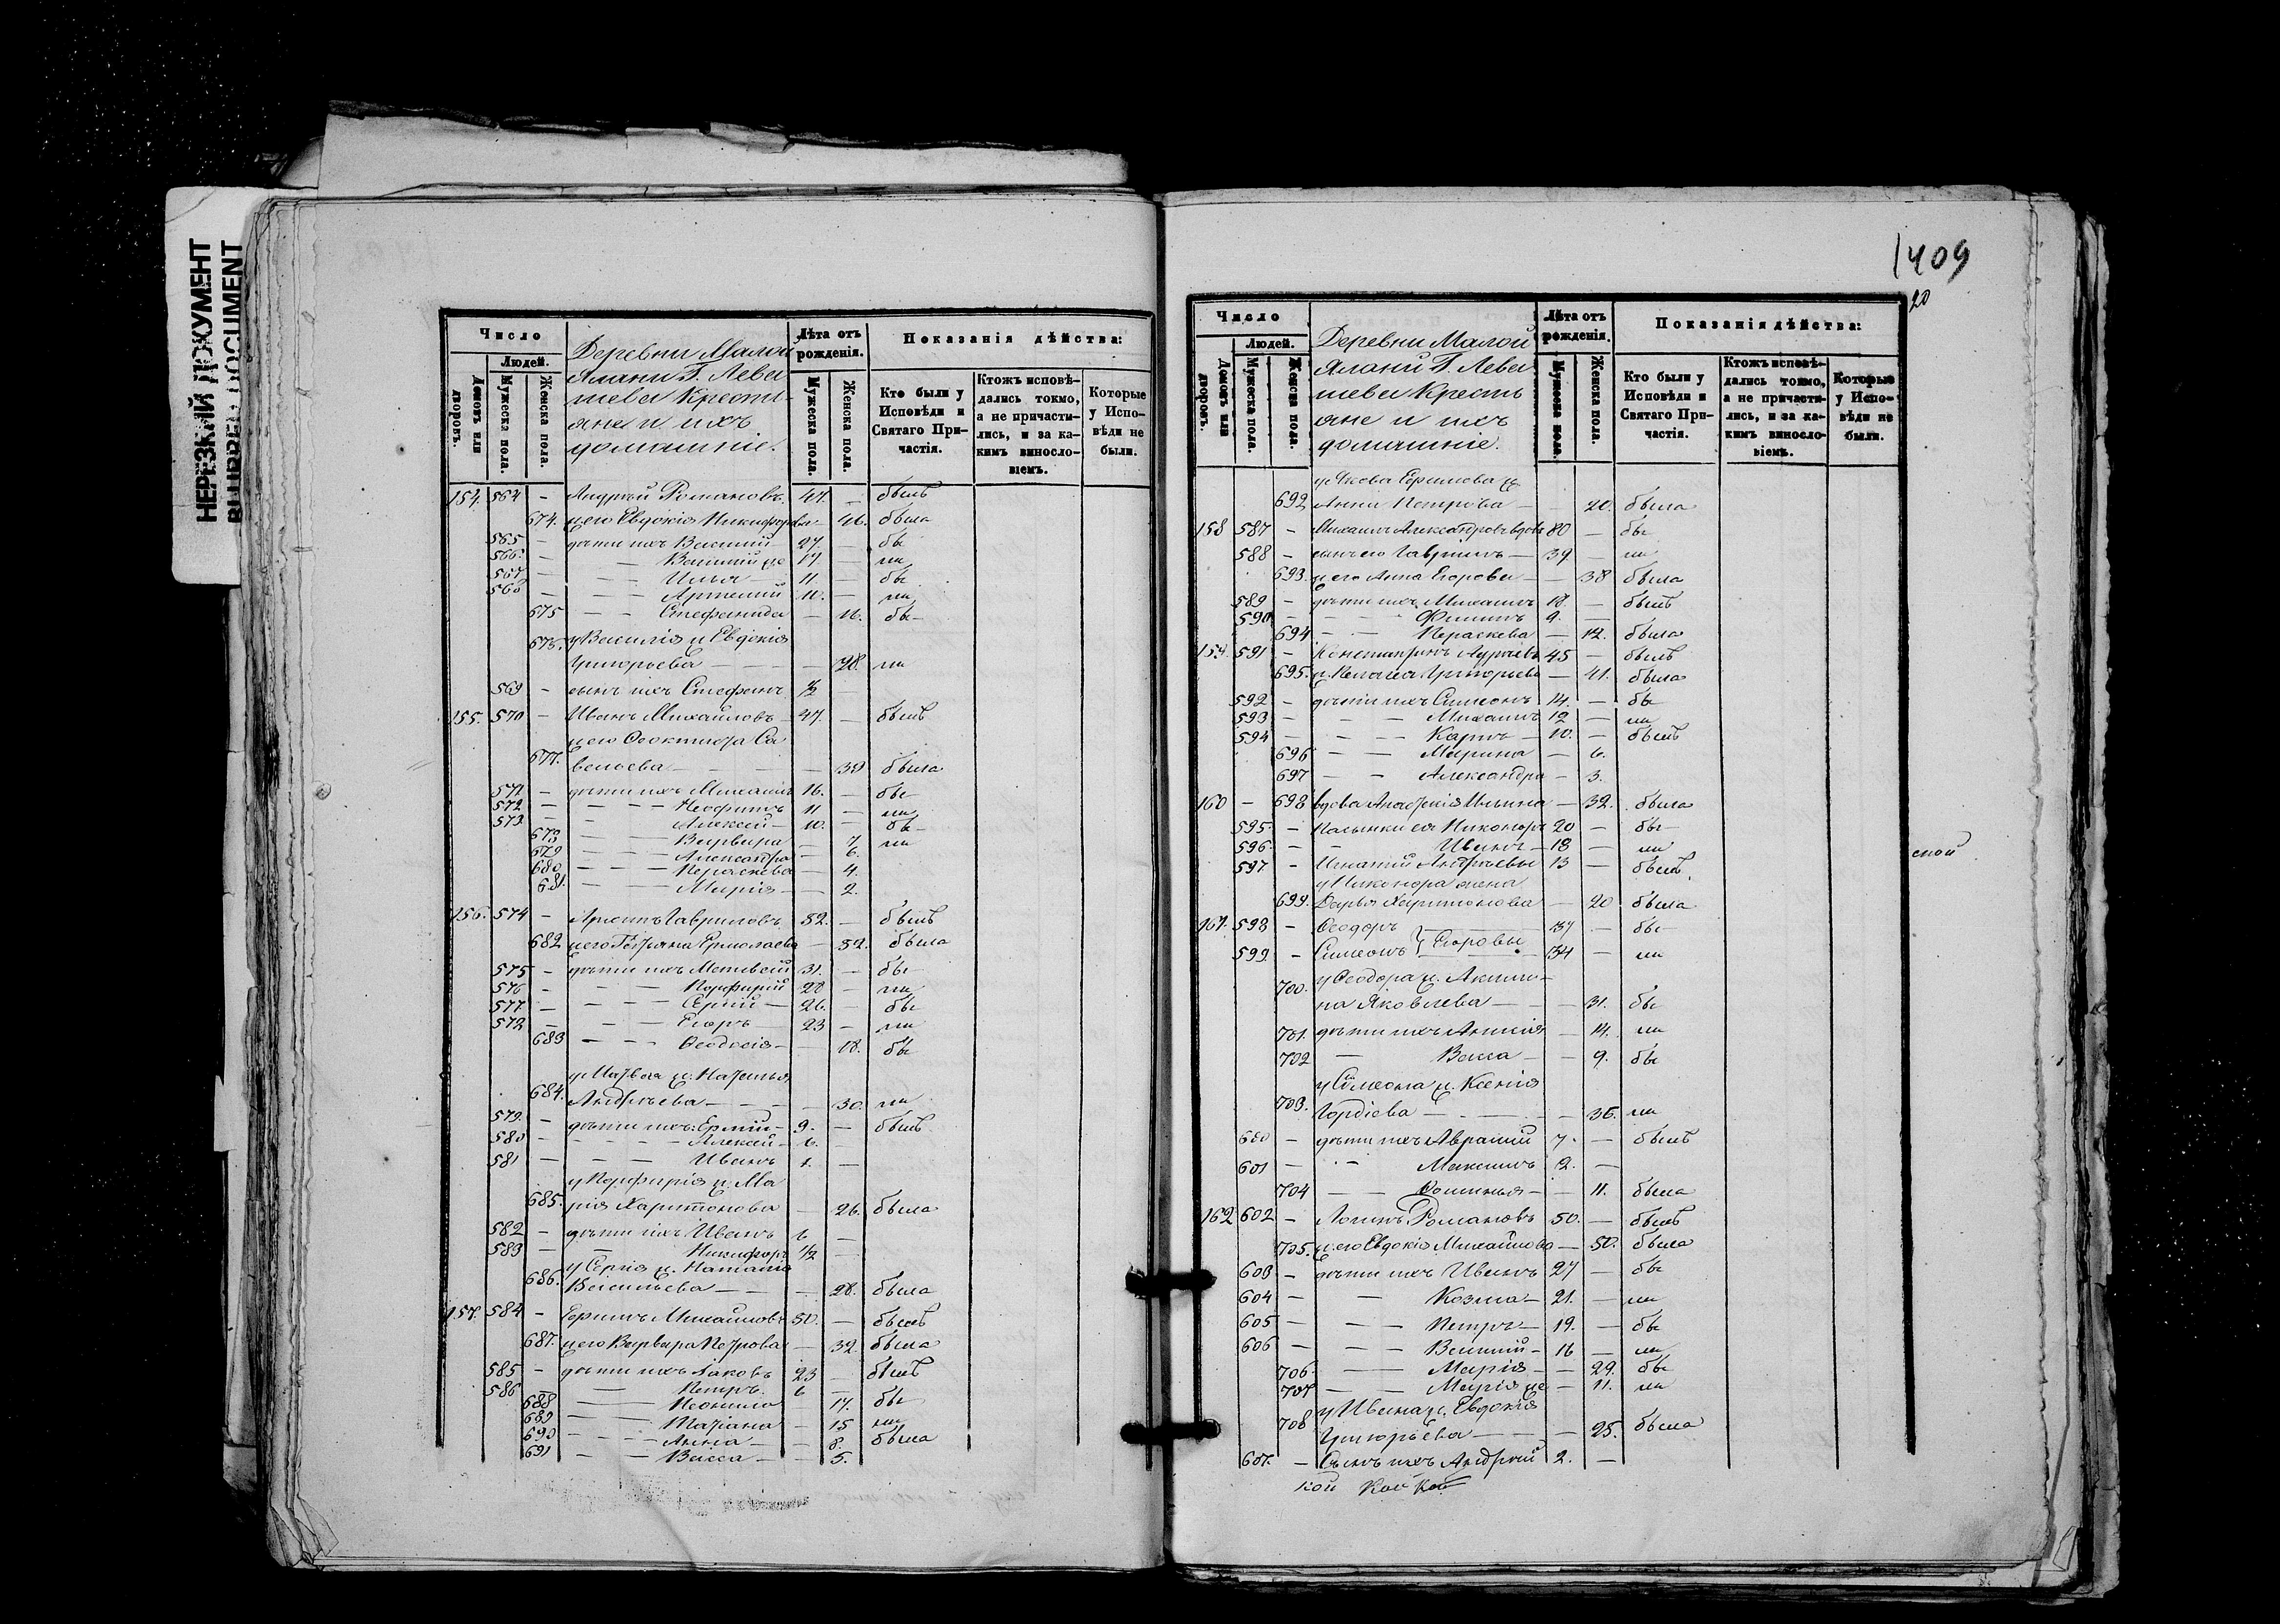 НЕРЕЗКИЙ ДОКУМЕНТ
BLURRED DOCUMENT
Число
Людей.
Домовъ или дворовъ.
Мужеска пола.
Женска пола.
Деревни Малой
Ялани Г. Леви
шева Кресть-
яне и ихъ
домашніе.
Лѣта отъ рожденія.
Мужеска пола.
Женска пола.
Показанія дѣйства:
Кто были у Исповѣди и Святаго Причастія.
Ктожъ исповѣдались токмо, а не причастились, и за какимъ винословіемъ.
Которые у Исповѣди не были.
154. 564 - Андрей Романовъ 47. - былъ
674. ж его Евдокія Никифорова - 46. была
565 - дѣти ихъ Василій - 27. - бы
566. - - Василій же 17. - ли
567 - - - Илья - 11. - бы
568 - - - Артемій 10. - ли
675 - - Стефанида - 16. бы-
675. у Василія ж Евдокія
Григорьева - - - 28. ли
569 - сынъ ихъ Стефанъ ½ -
155. 570 - Иванъ Михайловъ - 47. - былъ
ж его Ѳеоктиста Са
677. вельева - - - 39 была
571 - дѣти ихъ Михаилъ 16. - бы-
572 - - - - Неофитъ 11 - ли
573 - - Алексей - 10. - бы-
678 - - - Варвара - 7. ли
679 - - - Александра - 6.
680 - - - Пераскева - 4.
681. - - - Марія - - 2.
156. 574 - Архипъ Гавриловъ 52. - былъ
682 ж его Татіана Ермолаева - 52. была
575 - дѣти ихъ Матвей 31. - бы-
576 - - - Порфирій 28 - ли
577 - - - Сергій - 26. - бы
572 - - - Егоръ 23 - ли
683 - - - Ѳеодосія - - 18. бы
у Матвея ж. Наталья
684. Андреева - - - 30. ли
579. - дѣти ихъ: Ермій - 9. - былъ
580 - - - - Алексей - 6. -
581 - - - Иванъ 1. -
у Порфирія ж. Ма
685. рія Харитонова - 26. была
582 - дѣти ихъ Иванъ 6 -
583 - - Никифоръ ½ -
у Сергія ж. Наталія
686. Васильева - - - 28. была
157. 584 - Ефимъ Михайловъ 50. - былъ
687. ж его Варвара Петрова - 32. была
585 - дѣти ихъ Іаковъ 23 - былъ
586 - Петръ. 6 -
688 - - Неонила 17. бы
689 - - Татіана - 15 ли
690 - - - Анна - - 8. была
691 - - Васса - - 5.
1409
20
Число
Людей.
Домовъ или дворовъ.
Мужеска пола.
Женска пола.
Деревни Малой
Ялани Г. Леви
шева Кресть
яне и ихъ
домашніе.
Лѣта отъ рожденія.
Мужеска пола.
Женска пола.
Показанія дѣйства:
Кто были у Исповѣди и Святаго Причастія.
Ктожъ исповѣдались токмо, а не причастились, и за какимъ винословіемъ.
Которые у Исповѣди не были.
у Якова Ефимова ж.
692 Анна Петрова - 20. была
158 587 - Михаилъ Александровъ вдовъ 80 - бы
588 - сынъ его Гавриилъ - 39 - ли
693. ж его Анна Егорова - - 38 была
589 - дѣти ихъ Михаилъ 18. - былъ
590 - - - Филипъ 9. -
694 - - Пераскева - 12. была
159. 591 - Константинъ Андреевъ 45 - былъ
695. ж. Пелагея Григорьева - 41. была
592 - дѣти ихъ Симеонъ 14. - бы
593 - - - Михаилъ 12 - ли
594 - - - Карпъ - 10. - былъ
696 - - Марина - 6.
697 - - Александра - 3.
160 - 698 вдова Анастасія Ильина - 32. была
595. - Пасынки ея Никоноръ 20 - бы-
596. - - Иванъ - 18 - ли
597 - Игнатій Андреевы 13 - былъ.
у Никонора жена
699. Дарья Харитонова - 20 была
161. 598 - Ѳеодоръ } Егоровы 37 - бы-
599. - Симеонъ 34 - ли
у Ѳеодора ж. Акили-
700. на Яковлева - - 31. бы
701. дѣти ихъ Анисія - 14. ли
702 - Васса - - 9. бы
у Симеона ж. Ксенія
703. Гордіева - - - 36. ли
600 - дѣти ихъ Аврамій 7. - былъ
601 - - Максимъ 2. -
704 - - Соломнья - - 11. была
162 602 - Логинъ Романовъ 50. - былъ
705. ж. его Евдокія Михайлова - 50. была
603 - дѣти ихъ Иванъ 27 - бы
604 - - Козма - 21. - ли
605 - - - Петръ - 19. - бы
606 - - - Василій - 16 - ли
706. - - Марія - - 29. бы
707 - - Марія же - 11. ли
у Ивана ж. Евдокія
708 Григорьева - - - 25. была
607. - Сынъ ихъ Андрей 2. -
кой Кой
ской